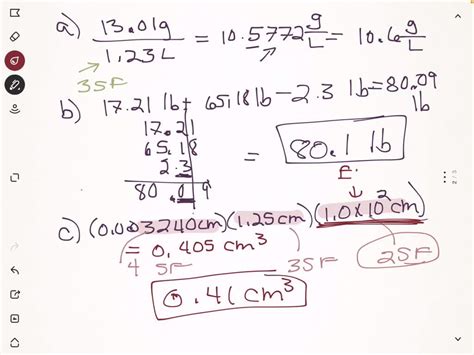 a) 13.01g / 1.23L = 10.5772 g/L = 10.6 g/L
3SF
b) 17.21 lb + 65.18 lb - 2.3 lb = 80.09 lb
17.21
65.18
2.3
80.09
= 80.1 lb
E.
c) (0.003240cm)(1.25cm)(1.0x10²cm)
= 0.405 cm³
4 SF 3SF 2SF
0.41 cm³
2/3